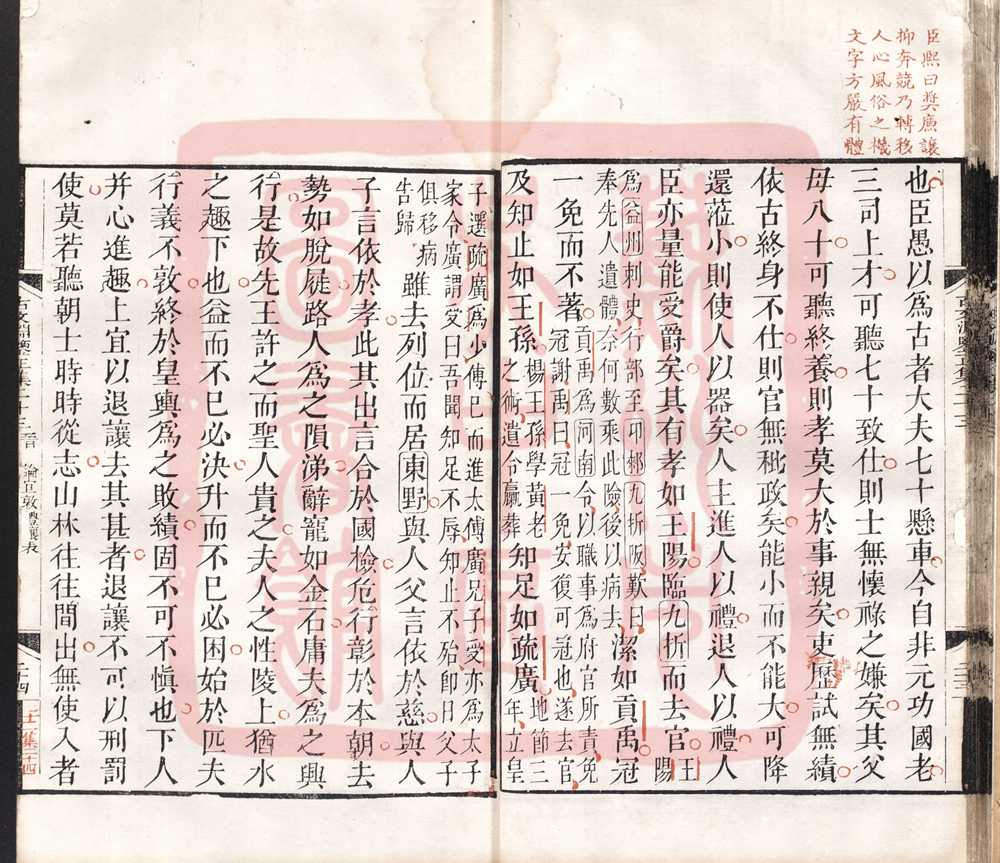 臣熙曰奬廉讓
抑奔競乃轉移
人心風俗之機
文字方嚴有體
也臣愚以爲古者大夫七十懸車今自非元功國老
三司上才可聽七十致仕則士無懷祿之嫌矣其父
母八十可聽終養則孝莫大於事親矣吏歷試無績
依古終身不仕則官無秕政矣能小而不能大可降
還蒞小則使人以器矣人主進人以禮退人以禮人
臣亦量能受爵矣其有孝如王陽臨九折而去官王陽
爲益州刺史行部至卭郲九折阪歎曰
奉先人遺體奈何數乘此險後以病去潔如貢禹冠
一免而不著貢禹爲河南令以職事爲府官所責免
冠謝禹曰冠一免安復可冠也遂去官
及知止如王孫楊王孫學黃老
之術遺令臝葬知足如疏廣地節三
年立皇
子選疏廣爲少傅巳而進太傅廣兄子受亦爲太子
家令廣謂受曰吾聞知足不辱知止不殆卽日父子
俱移病
告歸雖去列位而居東野與人父言依於慈與人
子言依於孝此其出言合於國檢危行彰於本朝去
勢如脫屣路人爲之隕涕辭寵如金石庸夫爲之興
行是故先王許之而聖人貴之夫人之性陵上猶水
之趣下也益而不巳必決升而不巳必困始於匹夫
行義不敦終於皇輿爲之敗績固不可不愼也下人
并心進趣上宜以退讓去其甚者退讓不可以刑罰
使莫若聽朝士時時從志山林往往間出無使入者